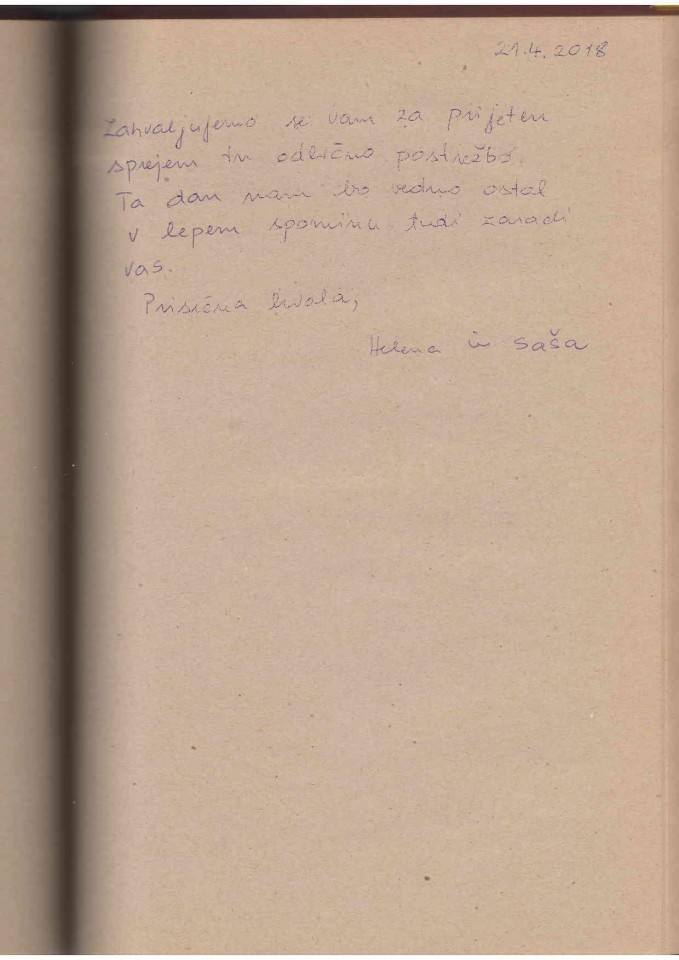 21.4.2018
Zahvaljujemo se vam za prijeten
sprejem in odlično postrežbo.
Ta dan nam bo vedno ostal
v lepem spominu tudi zaradi
vas.
Prisrčna hvala,
Helena in Saša